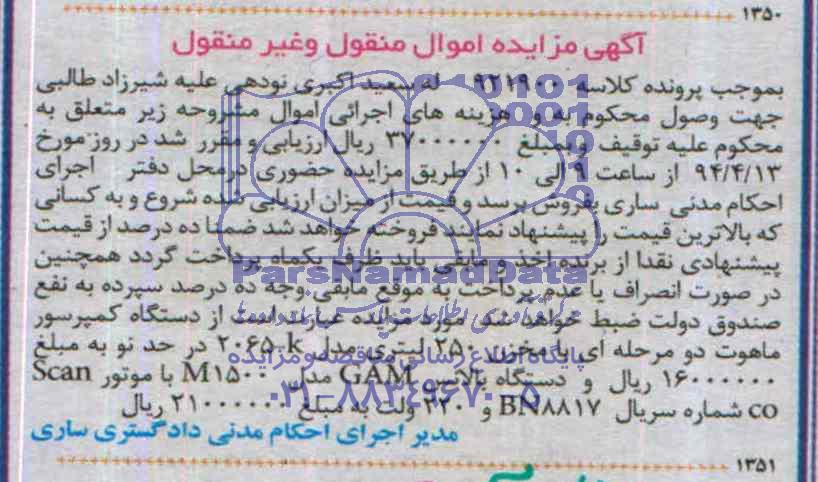 ۱۳۵۰
آگهی مزایده اموال منقول وغیر منقول
بموجب پرونده کلاسه ۹۲۱۹۰۰ له سعید اکبری نودهی علیه شیرزاد طالبی
جهت وصول محکوم به و هزینه های اجرائی اموال مشروحه زیر متعلق به
محکوم علیه توقیف و بمبلغ ۳۷۰۰۰۰۰۰ ریال ارزیابی و مقرر شد در روز مورخ
۹۴/۴/۱۳ از ساعت ۹ الی ۱۰ از طریق مزایده حضوری درمحل دفتر اجرای
احکام مدنی ساری بفروش برسد و قیمت از میزان ارزیابی شده شروع و به کسانی
که بالاترین قیمت را پیشنهاد نمایند فروخته خواهد شد ضمنا ده درصد از قیمت
پیشنهادی نقدا از برنده اخذ و مابقی باید ظرف یکماه پرداخت گردد همچنین
ParsNamadData
در صورت انصراف یا عدم پرداخت به موقع مابقی وجه ده درصد سپرده به نفع
صندوق دولت ضبط خواهد شد مورد مزایده عبارت است از دستگاه کمپرسور
ماهوت دو مرحله ای با مخزن ۲۵۰ لیتری مدل ۲۰۶۵-k در حد نو به مبلغ
پایگاه اطلاع رسانی مناقصه و مزایده
۱۶۰۰۰۰۰۰ ریال و دستگاه بالانس GAM مدل M۱۵۰۰ با موتور Scan
۰۲۱-۸۸۳۴۹۶۷۰-۵
co شماره سریال BN۸۸۱۷ و ۲۲۰ ولت به مبلغ ۲۱۰۰۰۰۰۰ ریال
مدیر اجرای احکام مدنی دادگستری ساری
۱۳۵۱